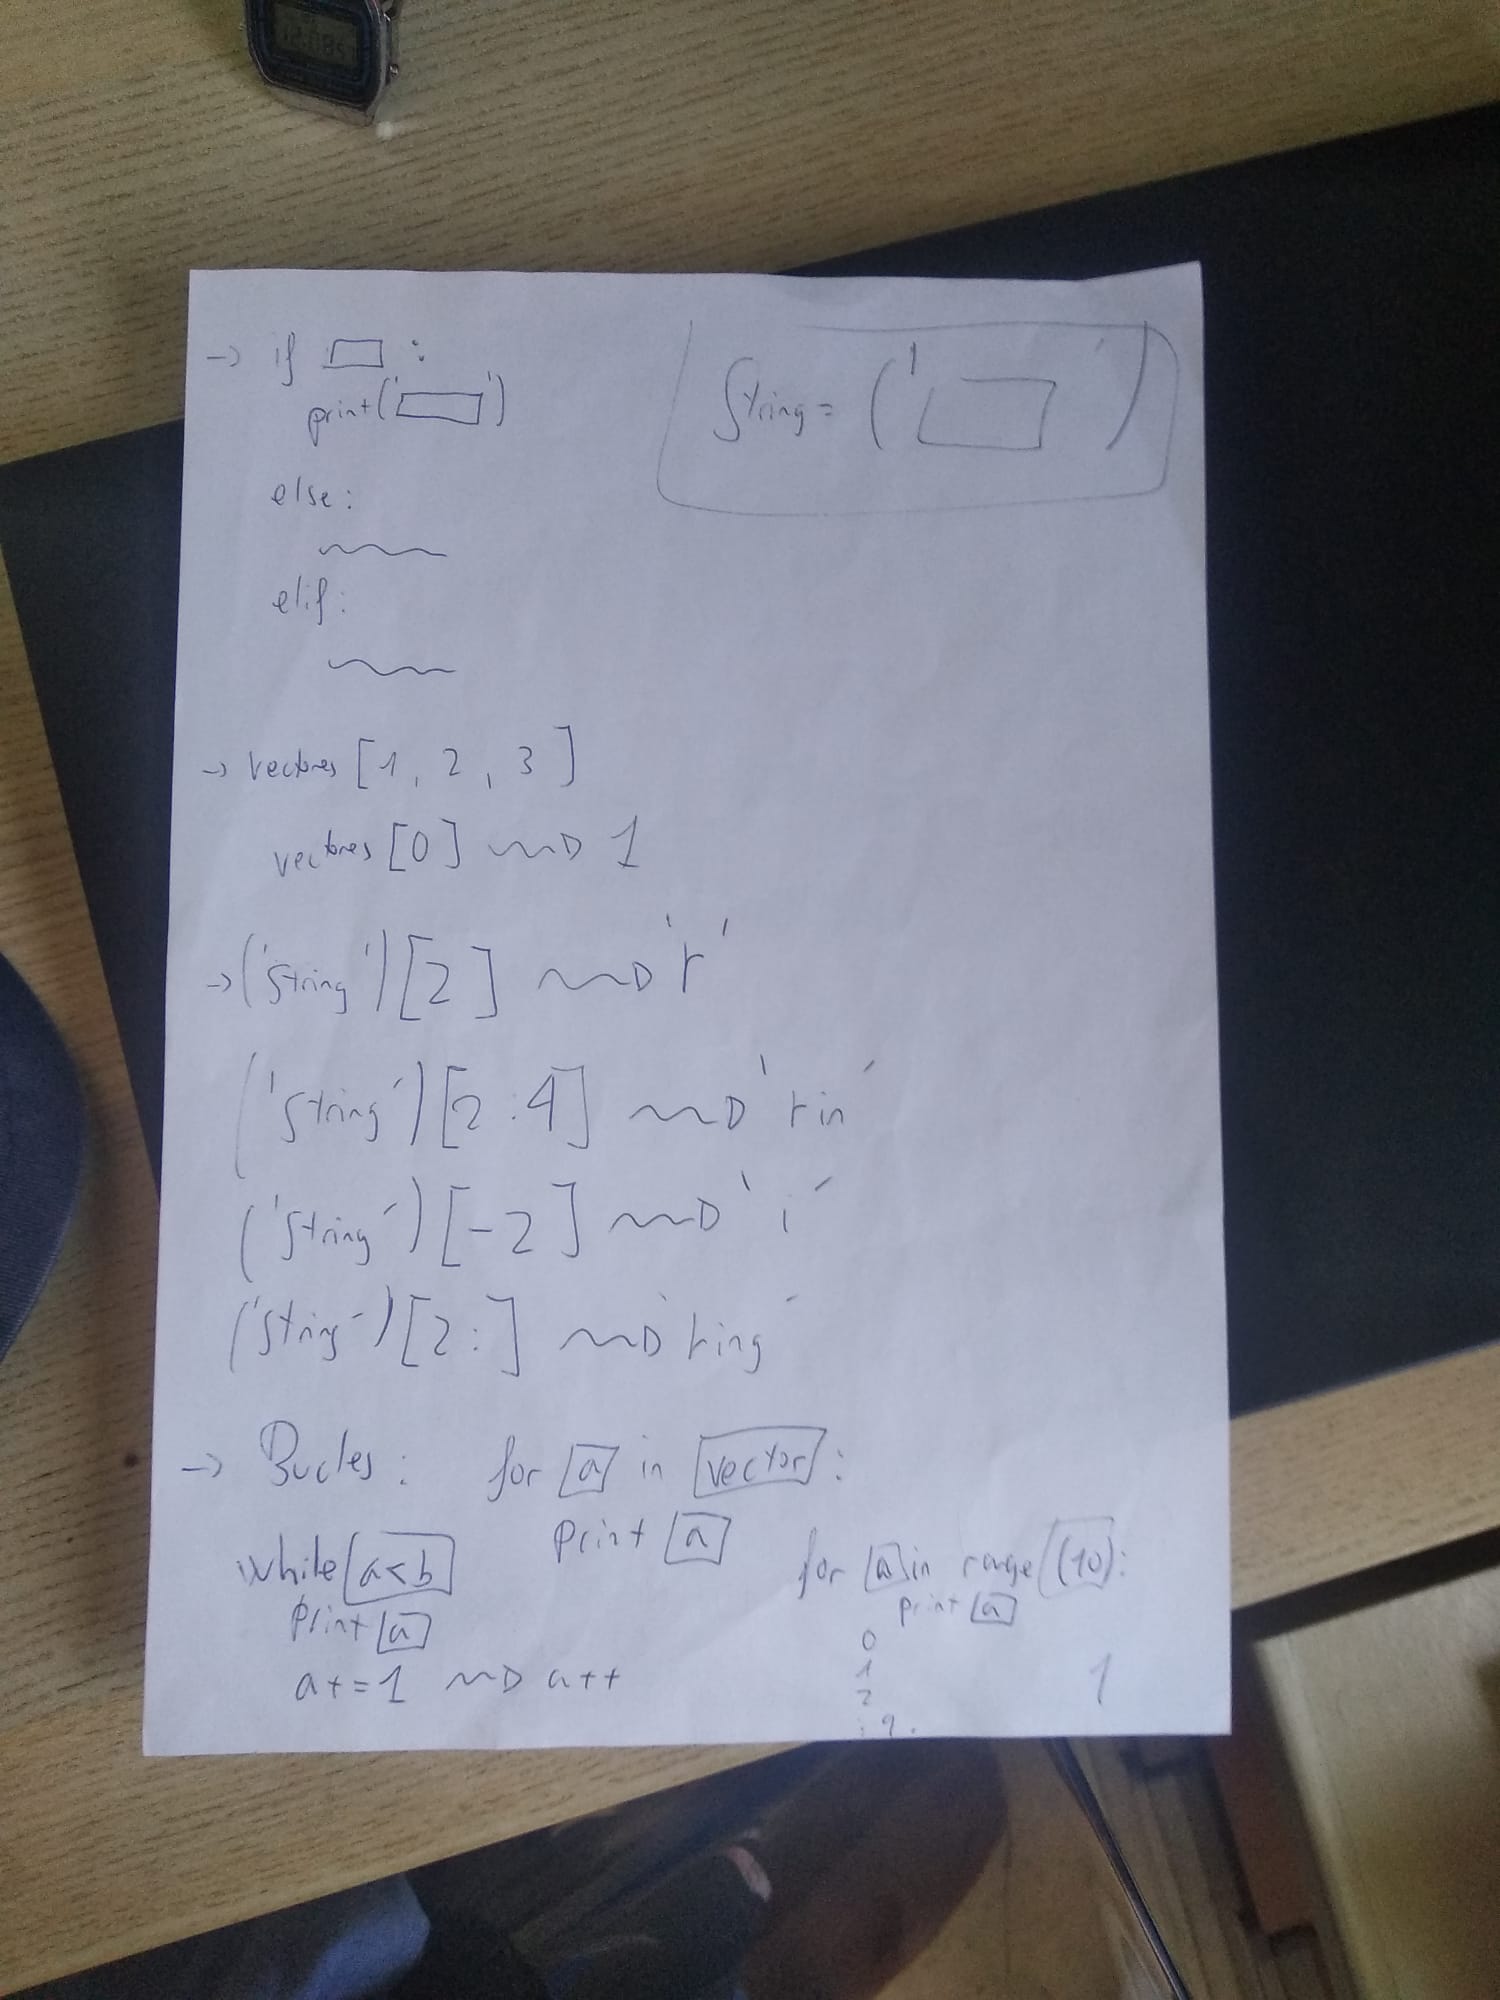 → if □ :
print('□')
String = ('□')
else:
elif:
→ vectores [1, 2, 3]
vectores [0] ~~▷ 1
→ ('string') [2] ~~▷ 'r'
('string') [2:4] ~~▷ 'rin'
('string') [-2] ~~▷ 'i'
('string') [2:] ~~▷ 'ring'
→ Bucles: for a in vector:
print a
while a<b
print a
a+=1 ~~▷ a++
for a in range (10):
print a
0
1
2
: 9.
1